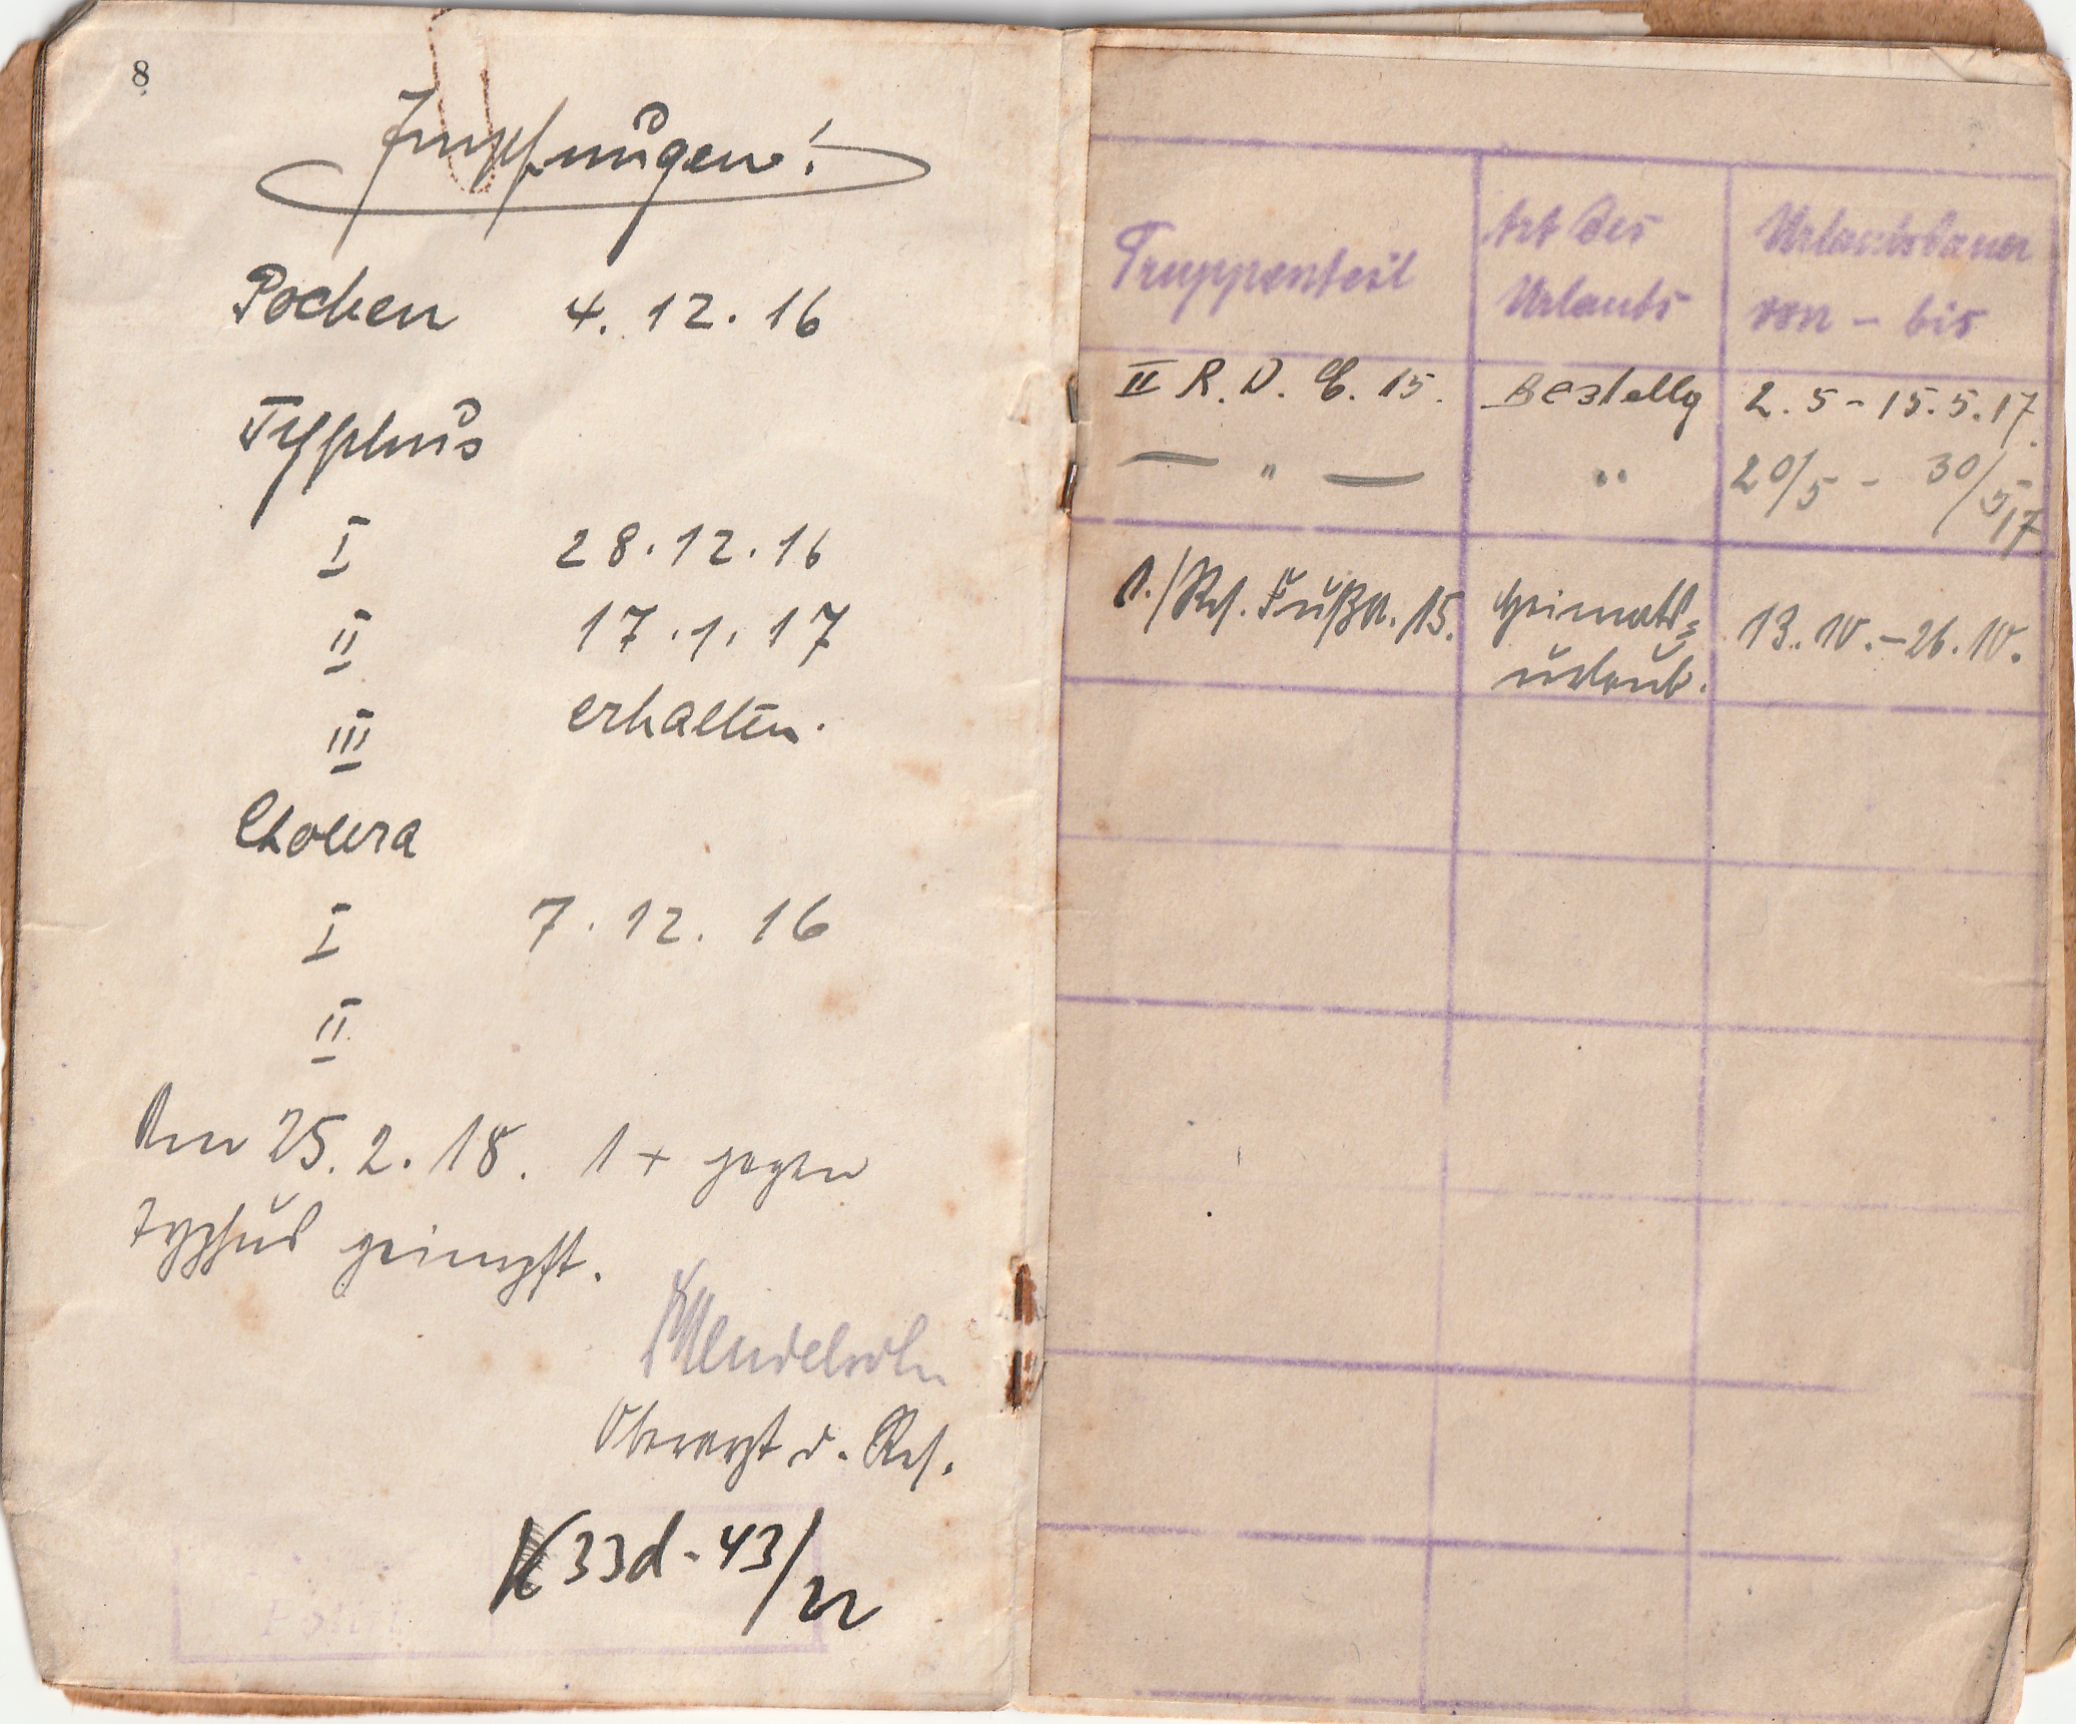 8
Impfungen!
Pocken 4. 12. 16
Typhus
I 28. 12. 16
II 17. 1. 17
III erhalten.
Cholera
I 7. 12. 16
II
Am 25. 2. 18. 1 x gegen
Typhus geimpft.
Mendelsohn
Oberarzt d. Res.
K 33d - 43/22
Truppenteil
Art des
Urlaubs
Urlaubsdauer
von - bis
II R. D. E. 15. Bestellg 2. 5 - 15. 5. 17.
— " — " 20/5 - 30/5 17
1./Res. Fußa. 15. Heimats=
urlaub. 13. 10. - 26. 10.